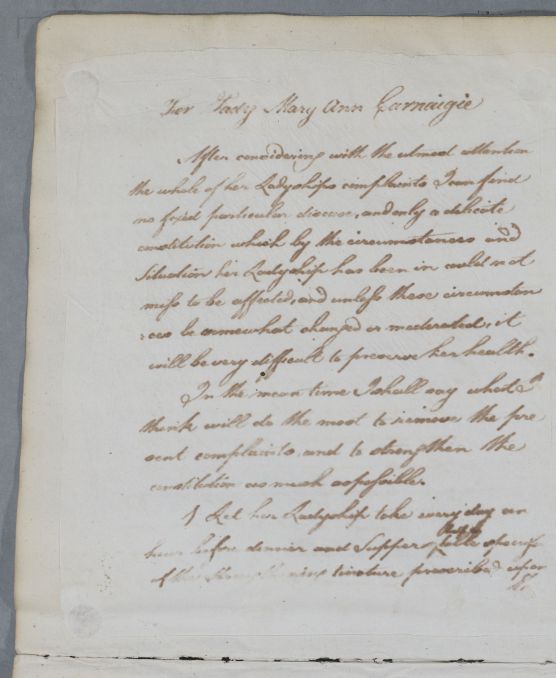 For Lady Mary Ann Carnaigie
After considering with the utmost attention
the whole of her Ladyships complaints I can find
no fixed particular disease, and only a delicate
constitution which by the circumstances and
Situation her Ladyship has been in could not
miss to be affected, and unless these circumstan
:ces be somewhat changed or moderated, it
will be very difficult to preserve her health.
In the mean time I shall say what I
think will do the most to remove the pre
sent complaints, and to strengthen the
constitution as much as possible.
1 Let her Ladyship take every day an
hour before dinner and Supper, half
table spoonful
of the Strengthening tincture prescribed upon